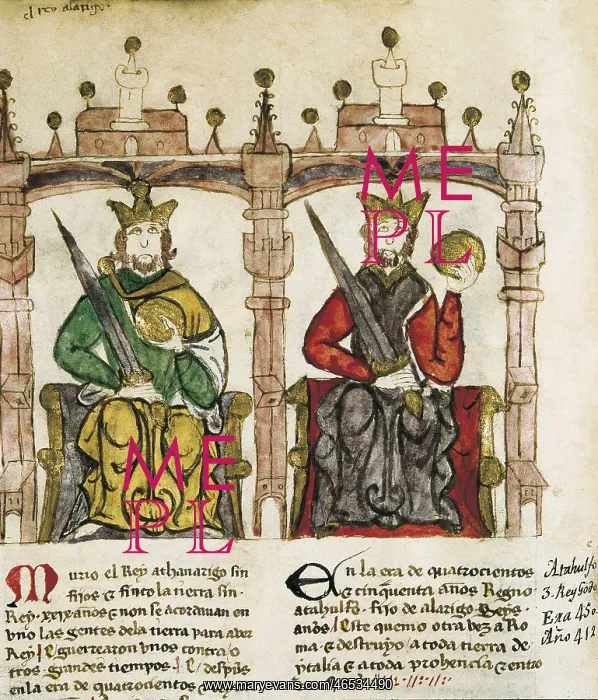 el rey alarigo.
ME
PL
ME
PL
Murio el Rey athanarigo sin
fijos & finco la tierra sin
Rey. xxix años & non se acordauan en
vno las gentes dela tierra para aber
Rey / E guerrearon vnos contra o
tros grandes tiempos / E despues
enla era de quatrocientos
En la era de quatrocientos
& cinquenta años Regno
atahulfo. fijo de alarigo Seys.
años / Este quemo otra vez a Ro
ma & destruyo a toda tierra de
ytalia & a toda prohencia & entro
Atahulfo
3. Rey Godo
Era 450
Año 412
www.maryevans.com/46534490